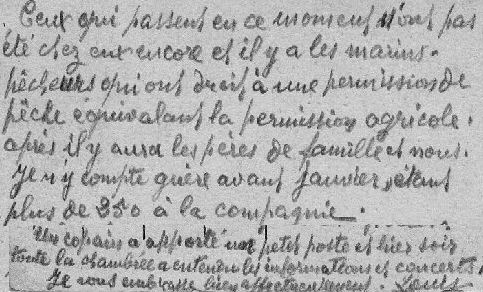 Ceux qui passent en ce moment n'ont pas
été chez eux encore et il y a les marins-
pêcheurs qui ont droit à une permission de
pêche équivalant la permission agricole.
après il y aura les pères de famille et nous.
Je n'y compte guère avant Janvier, étant
plus de 250 à la compagnie.
Un copain a apporté un petit poste et hier soir
toute la chambrée a entendu les informations et concerts.
Je vous embrasse bien affectueusement. Louis